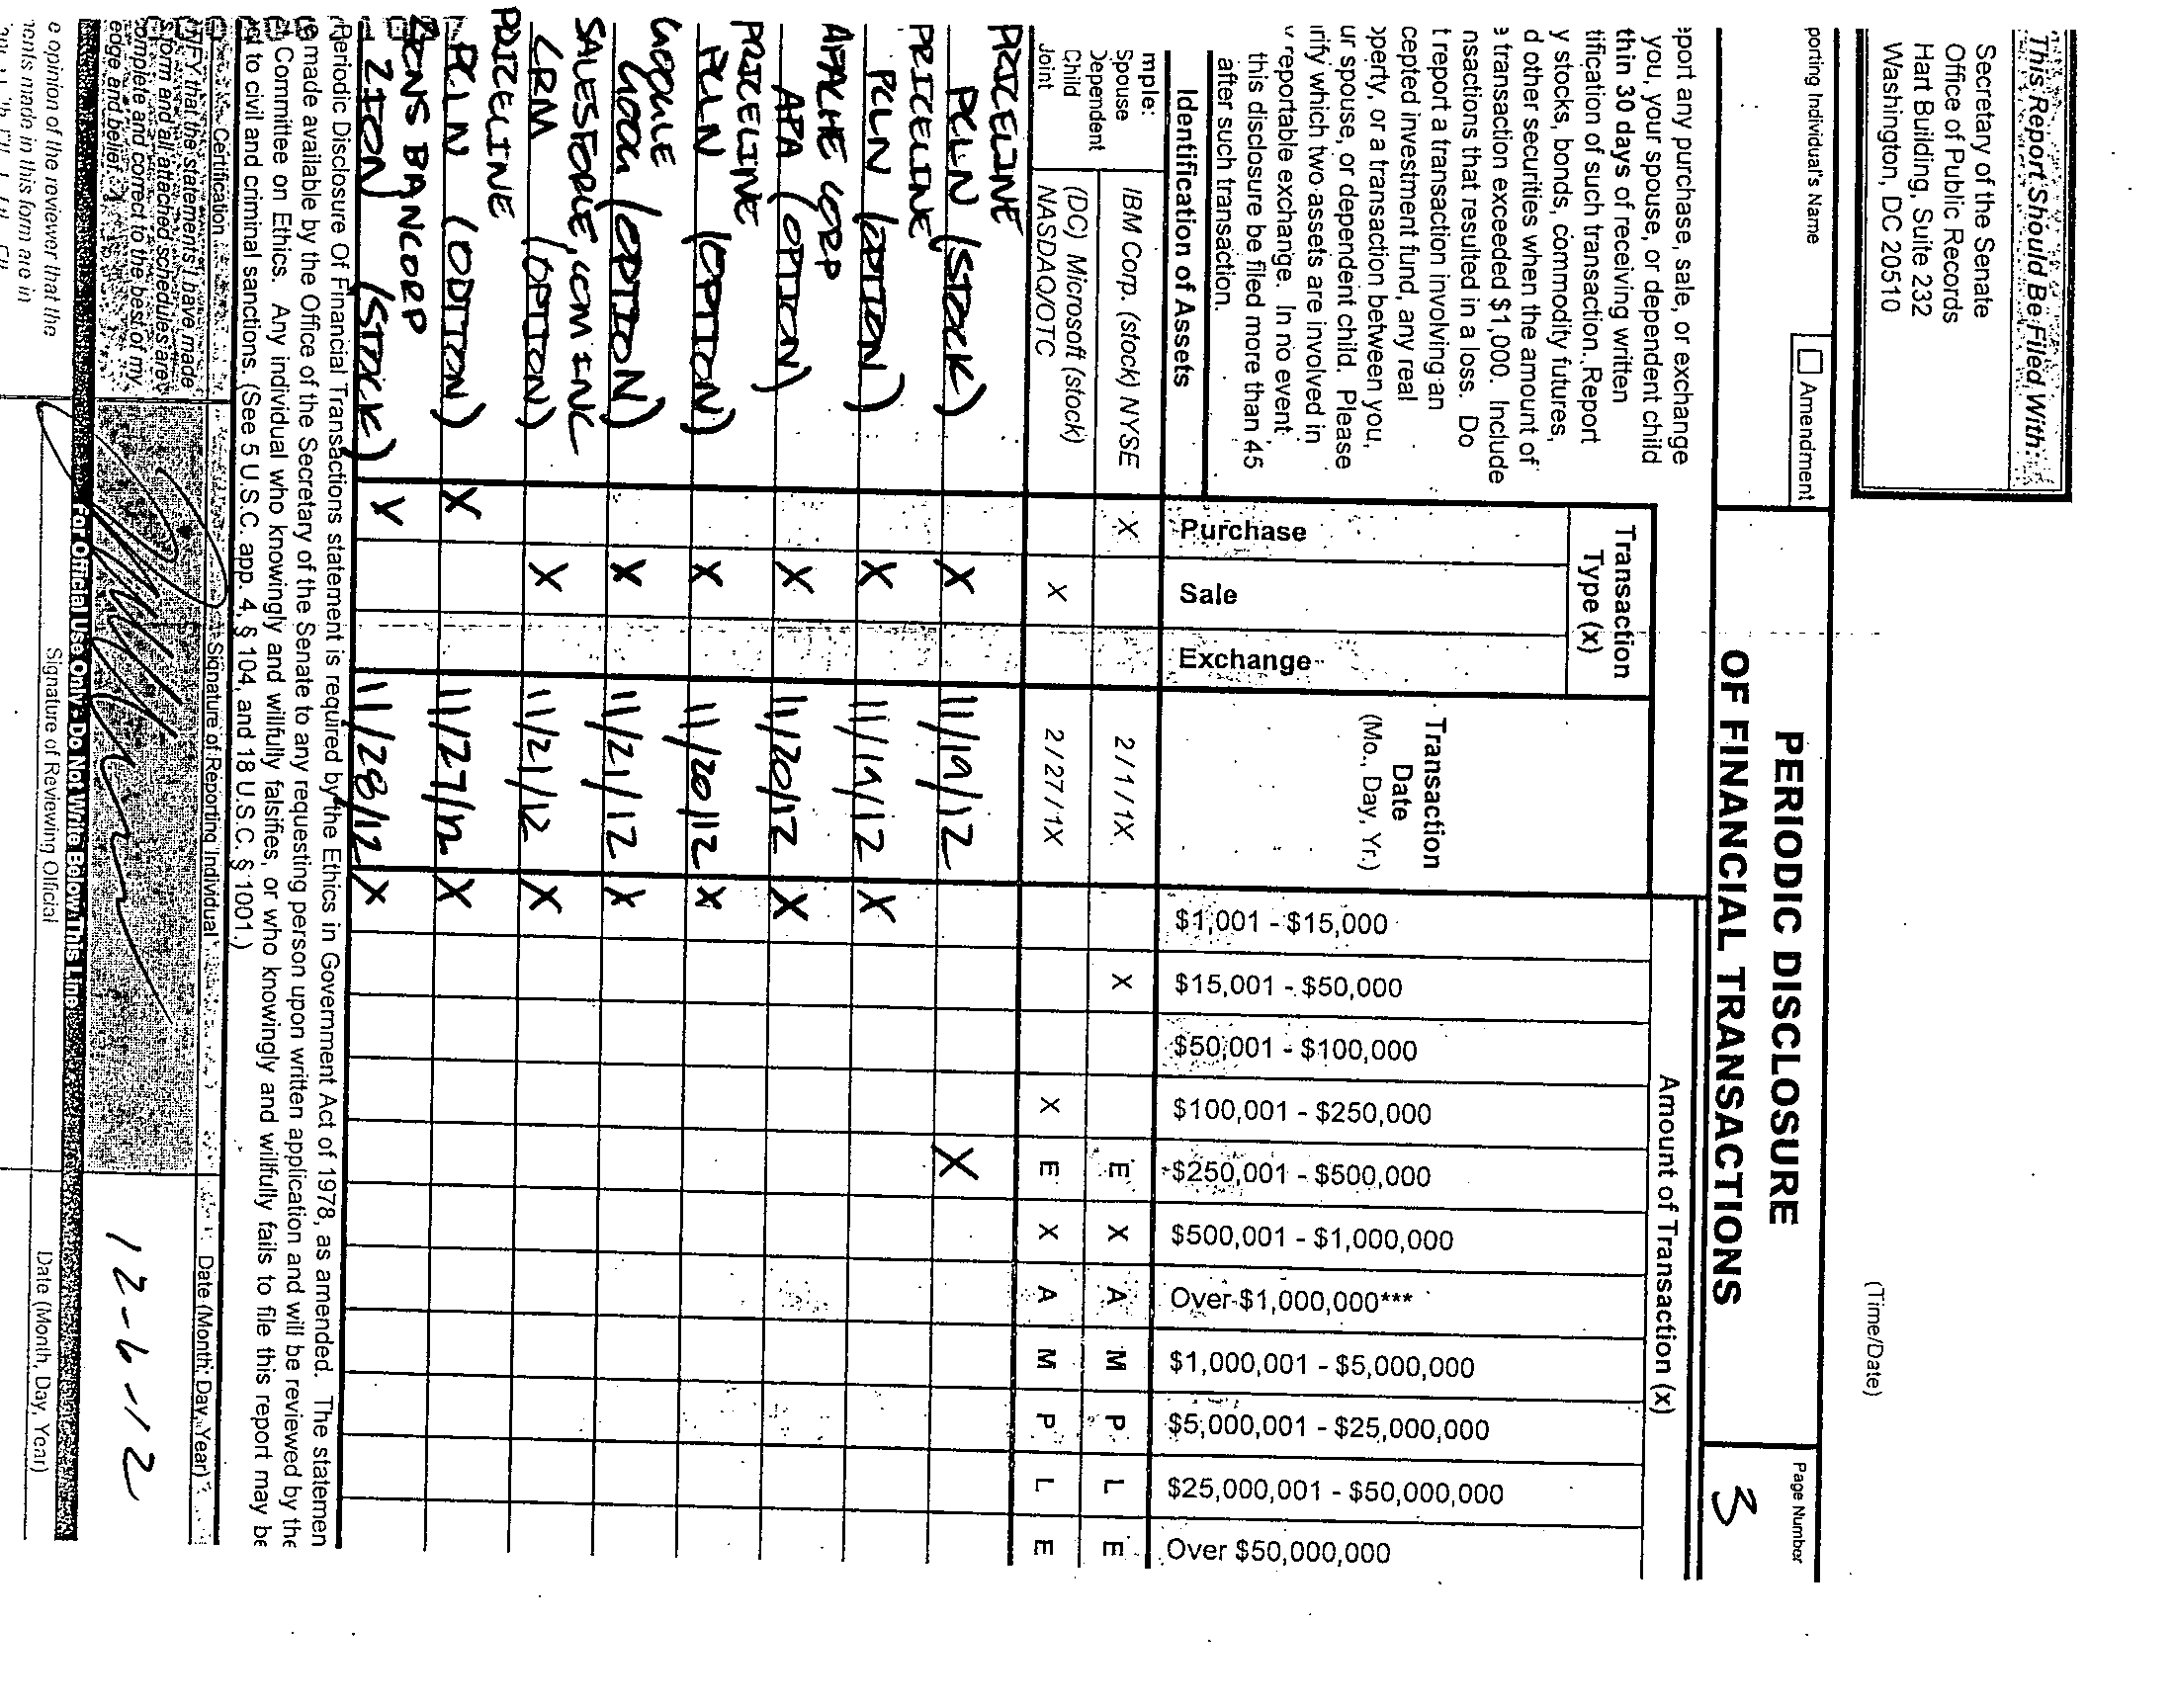 This Report Should Be Filed With:
Secretary of the Senate
Office of Public Records
Hart Building, Suite 232
Washington, DC 20510
(Time/Date)
porting Individual's Name
Amendment
PERIODIC DISCLOSURE
OF FINANCIAL TRANSACTIONS
Page Number
3
eport any purchase, sale, or exchange
you, your spouse, or dependent child
thin 30 days of receiving written
tification of such transaction. Report
y stocks, bonds, commodity futures,
d other securities when the amount of
e transaction exceeded $1,000. Include
nsactions that resulted in a loss. Do
t report a transaction involving an
cepted investment fund, any real
operty, or a transaction between you,
ur spouse, or dependent child. Please
rify which two assets are involved in
reportable exchange. In no event
this disclosure be filed more than 45
after such transaction.
Identification of Assets
Transaction
Type (x)
Purchase
Sale
Exchange
Transaction
Date
(Mo., Day, Yr.)
Amount of Transaction (x)
$1,001 - $15,000
$15,001 - $50,000
$50,001 - $100,000
$100,001 - $250,000
$250,001 - $500,000
$500,001 - $1,000,000
Over $1,000,000***
$1,000,001 - $5,000,000
$5,000,001 - $25,000,000
$25,000,001 - $50,000,000
Over $50,000,000
mple:
Spouse
Dependent
Child
Joint
IBM Corp. (stock) NYSE X 2/1/1X X E X A M P L E
(DC) Microsoft (stock)
NASDAQ/OTC X 2/27/1X X E X A M P L E
PRICELINE
PCLN (STOCK) X 11/19/12 X
PRICELINE
PCLN (OPTION) X 11/19/12 X
APACHE CORP
APA (OPTION) X 11/20/12 X
PRICELINE
PCLN (OPTION) X 11/20/12 X
GOOGLE
GOOG (OPTION) X 11/21/12 X
SALESFORCE.COM INC
CRM (OPTION) X 11/21/12 X
PRICELINE
PCLN (OPTION) X 11/27/12 X
ZIONS BANCORP
ZION (STOCK) X 11/28/12 X
Periodic Disclosure Of Financial Transactions statement is required by the Ethics in Government Act of 1978, as amended. The statemen
made available by the Office of the Secretary of the Senate to any requesting person upon written application and will be reviewed by the
Committee on Ethics. Any individual who knowingly and willfully falsifies, or who knowingly and willfully fails to file this report may be
ct to civil and criminal sanctions. (See 5 U.S.C. app. 4, § 104, and 18 U.S.C. § 1001.)
Certification
Signature of Reporting Individual
Date (Month, Day, Year)
TFY that the statements I have made
s form and all attached schedules are
omplete and correct to the best of my
edge and belief.
12-6-12
For Official Use Only - Do Not Write Below This Line
e opinion of the reviewer that the
nents made in this form are in
Signature of Reviewing Official
Date (Month, Day, Year)